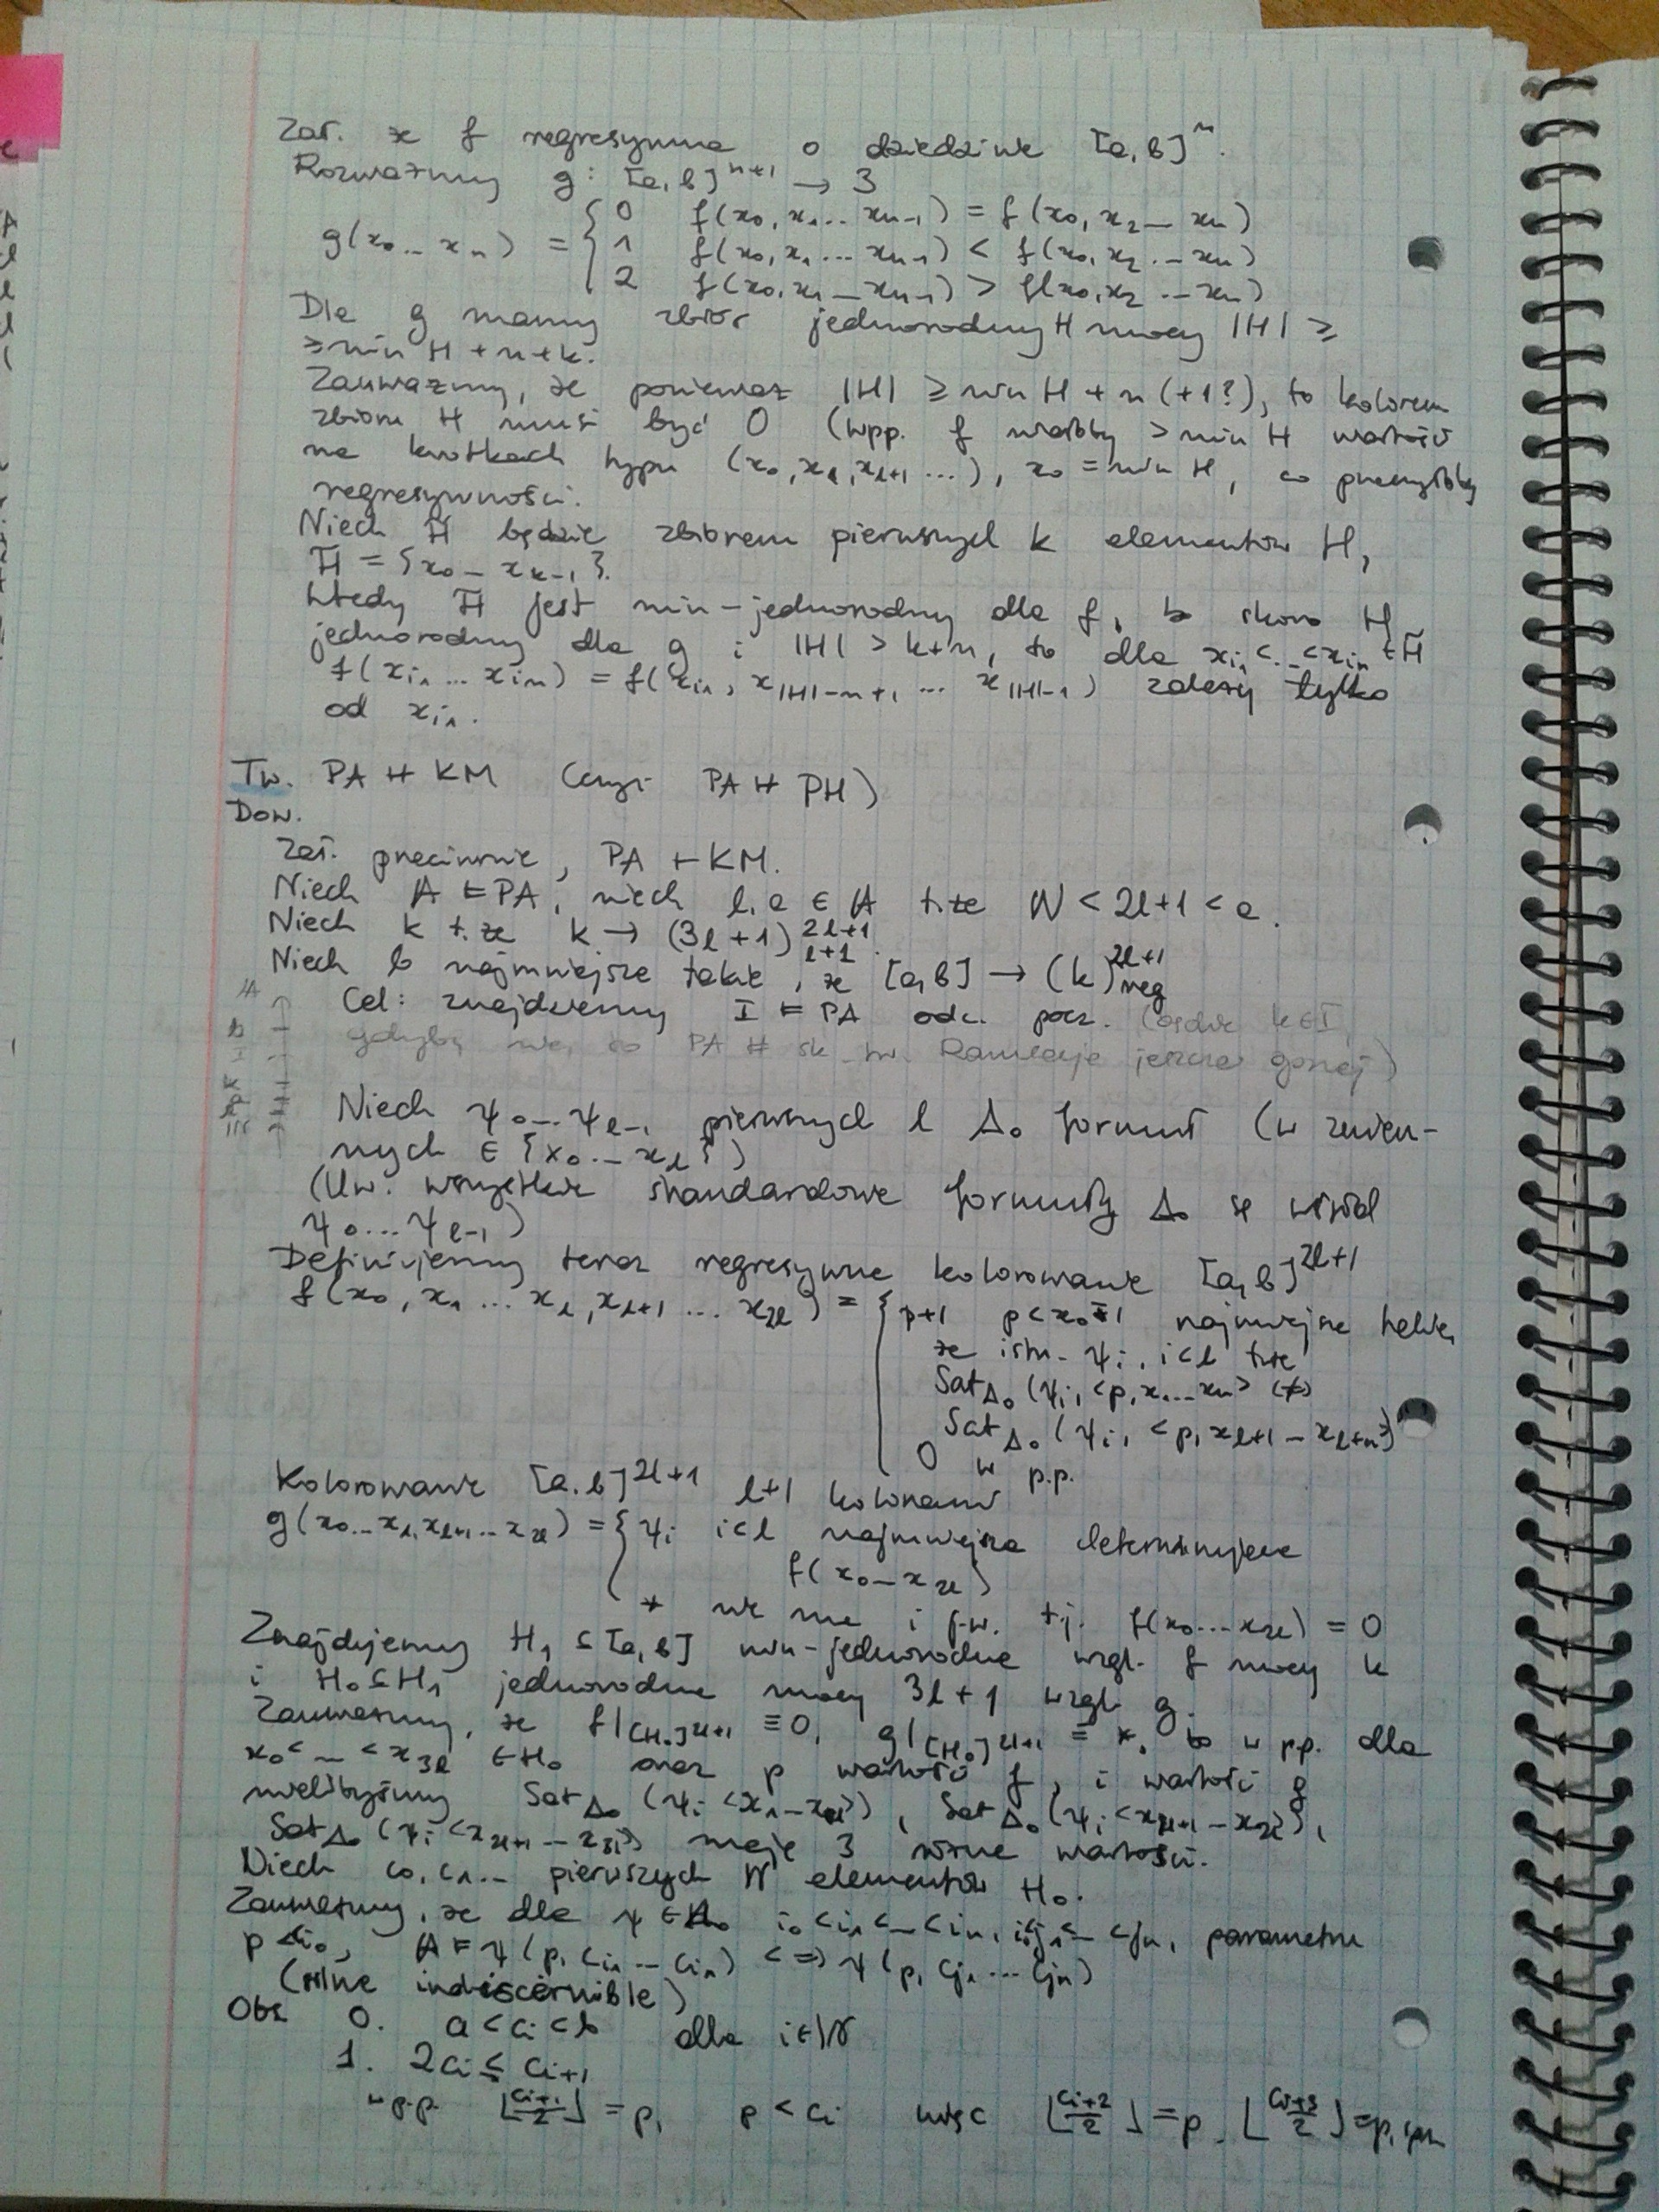 Zał. że f regresywna o dziedzinie [a,b]^n.
Rozważmy g: [a,b]^{n+1} → 3
g(x_0...x_n) = { 0 f(x_0,x_1...x_{n-1}) = f(x_0,x_2...x_n)
1 f(x_0,x_1...x_{n-1}) < f(x_0,x_2...x_n)
2 f(x_0,x_1...x_{n-1}) > f(x_0,x_2...x_n)
Dla g mamy zbiór jednorodny H mocy |H| ≥
≥ min H + n + k.
Zauważmy, że ponieważ |H| ≥ min H + n (+1?), to kolorem
zbioru H musi być 0 (wpp. f miałaby > min H wartości
na krotkach typu (x_0, x_l, x_{l+1}...), x_0 = min H, co przeczyłoby
regresywności.
Niech H̃ będzie zbiorem pierwszych k elementów H,
H̃ = {x_0...x_{k-1}}.
Wtedy H̃ jest min-jednorodny dla f, bo skoro H
jednorodny dla g i |H| > k+n, to dla x_{i_1}<...<x_{i_n} ∈ H̃
f(x_{i_1}...x_{i_n}) = f(x_{i_1}, x_{|H|-n+1}...x_{|H|-1}) zależy tylko
od x_{i_1}.
Tw. PA ⊬ KM (czyli PA ⊬ PH)
Dow.
Zał. przeciwnie, PA ⊢ KM.
Niech 𝔸 ⊨ PA, niech l, a ∈ 𝔸 t. że ℕ < 2l+1 < a.
Niech k t. że k → (3l+1)^{2l+1}_{l+1}.
Niech b najmniejsze takie, że [a,b] → (k)^{2l+1}_{reg}
Cel: znajdziemy I ⊨ PA odc. pocz. k∈I
gdyby nie, to PA ⊬ sk. tw. Ramseya jeszcze gorzej)
𝔸
b
I
k
a
l
ℕ
Niech ψ_0...ψ_{l-1} pierwszych l Δ_0 formuł (w zmien-
nych ∈ {x_0...x_l})
(Uw. wszystkie standardowe formuły Δ_0 są wśród
ψ_0...ψ_{l-1})
Definiujemy teraz regresywne kolorowanie [a,b]^{2l+1}
f(x_0, x_1...x_l, x_{l+1}...x_{2l}) = { p+1 p<x_0-1 najmniejsze takie,
że istn. ψ_i, i<l t. że
Sat_{Δ_0}(ψ_i, <p, x_1...x_n>) (≠)
Sat_{Δ_0}(ψ_i, <p, x_{l+1}...x_{l+n}>)
0 w p.p.
Kolorowanie [a,b]^{2l+1} l+1 kolorami
g(x_0...x_l,x_{l+1}...x_{2l}) = { ψ_i i<l najmniejsza determinująca
f(x_0...x_{2l})
* nie ma i j.w. tj. f(x_0...x_{2l}) = 0
Znajdujemy H_1 ⊆ [a,b] min-jednorodne wzgl. f mocy k
i H_0 ⊆ H_1 jednorodne mocy 3l+1 wzgl. g.
Zauważmy, że f|_{[H_0]^{2l+1}} ≡ 0, g|_{[H_0]^{2l+1}} ≡ *, bo w p.p. dla
x_0<...<x_{3l} ∈ H_0 oraz p wartość f, i wartość g
mielibyśmy Sat_{Δ_0}(ψ_i <x_1...x_l>), Sat_{Δ_0}(ψ_i, <x_{l+1}...x_{2l}>),
Sat_{Δ_0}(ψ_i <x_{2l+1}...x_{3l}>) mają 3 różne wartości.
Niech c_0, c_1... pierwszych ℕ elementów H_0.
Zauważmy, że dla ψ ∈ Δ_0 i_0<i_1<...<i_n, i_0<j_1<...<j_n, parametru
p<c_{i_0}, 𝔸 ⊨ ψ(p, c_{i_1}...c_{i_n}) <=> ψ(p, c_{j_1}...c_{j_n})
(silne indiscernible)
Obs 0. a<c_i<b dla i∈ℕ
1. 2c_i ≤ c_{i+1}
w p.p. ⌊c_{i+1}/2⌋ = p, p<c_i więc ⌊c_{i+2}/2⌋ = p, ⌊c_{i+3}/2⌋ = p,